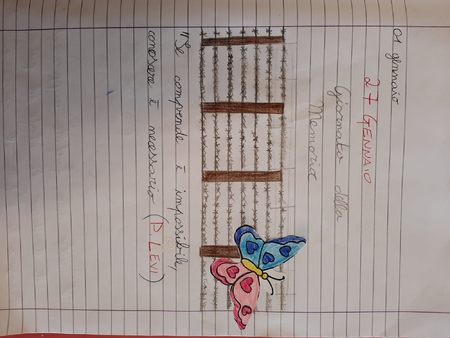 01 gennaio
27 GENNAIO
Giornata della
Memoria
"Se comprende è impossibile,
conoscere è necessario (P. LEVI)